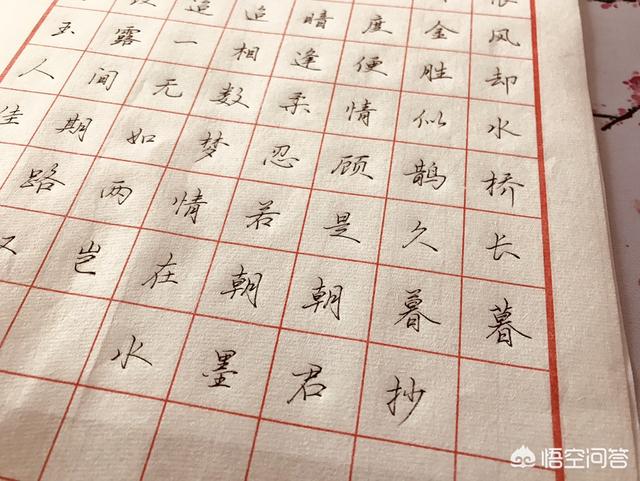 迢迢暗度金风
玉露一相逢便胜却
人间无数柔情似水
佳期如梦忍顾鹊桥
路两情若是久长
又岂在朝朝暮暮
水墨君抄
悟空问答